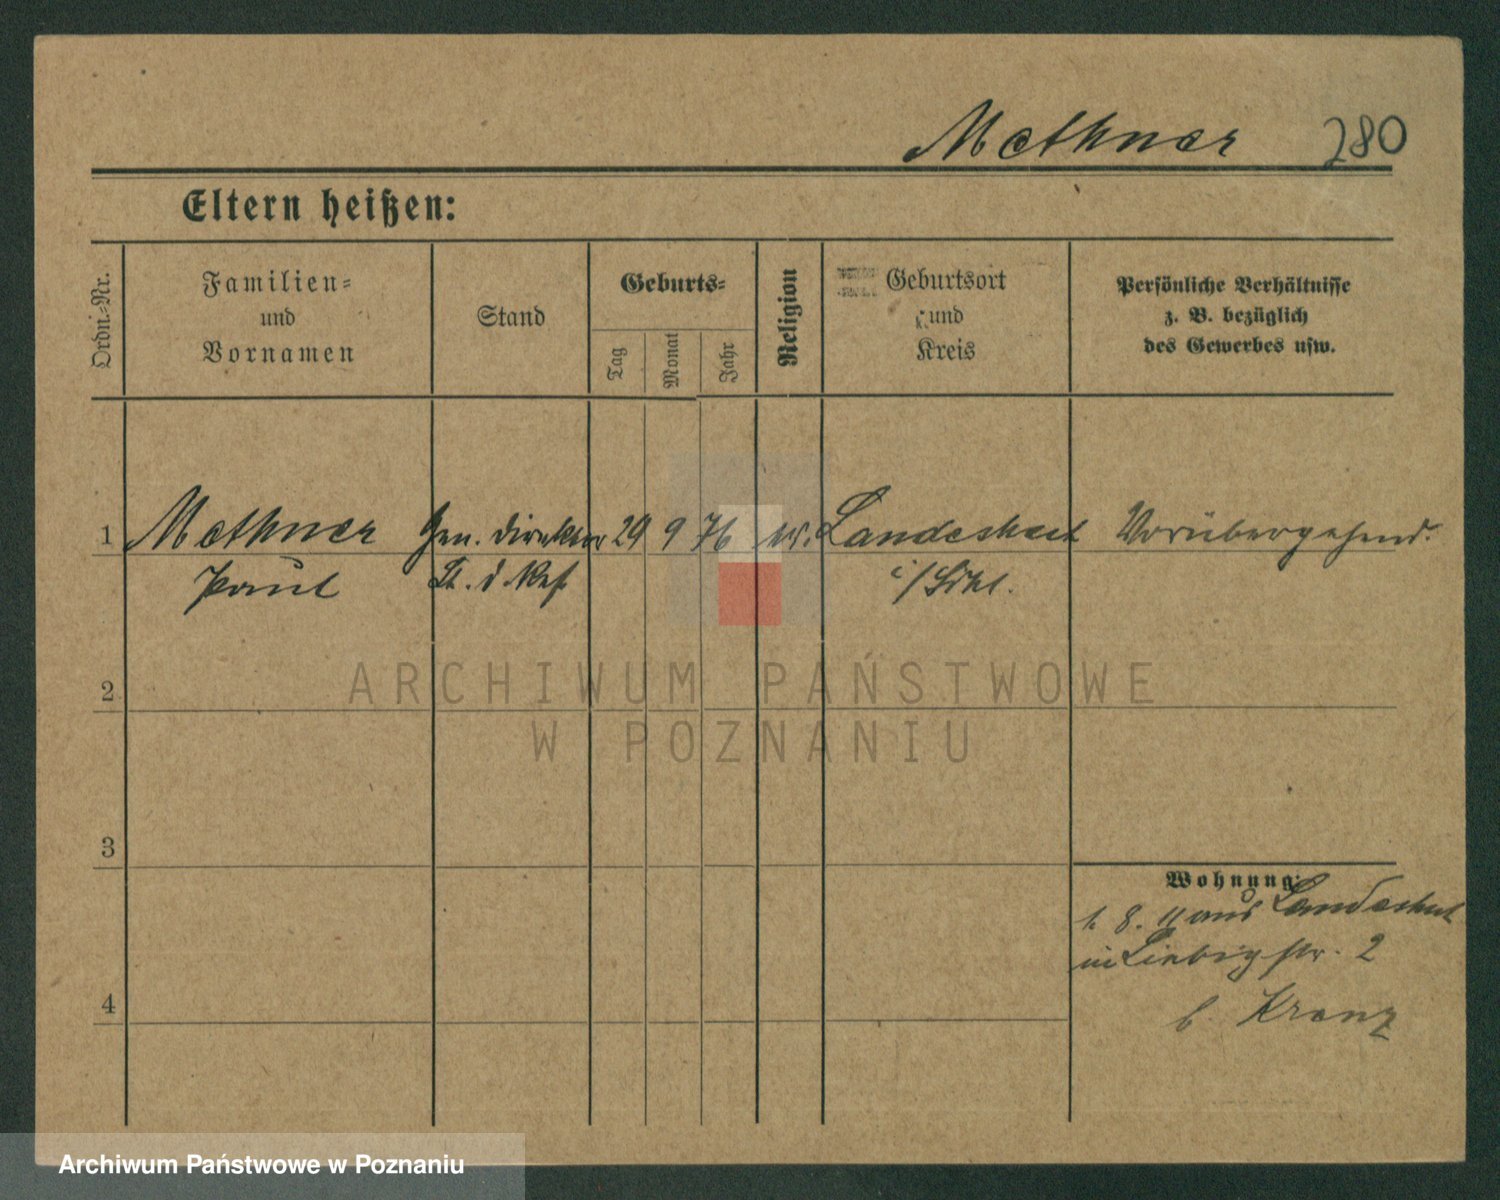 Methner 280
Eltern heißen:
Ordn.-Nr.
Familien-
und
Vornamen
Stand
Geburts-
Tag
Monat
Jahr
Religion
Geburtsort
und
Kreis
Persönliche Verhältnisse
z. B. bezüglich
des Gewerbes usw.
1 Methner Gen. Direktor 29 9 76 Landeshut Vorübergehend.
Paul Lt. d. Res i/Schl.
ARCHIWUM PAŃSTWOWE
W POZNANIU
2
3
Wohnung:
1. 8. 11 aus Landeshut
in Liebigstr. 2
b. Kranz
4
Archiwum Państwowe w Poznaniu